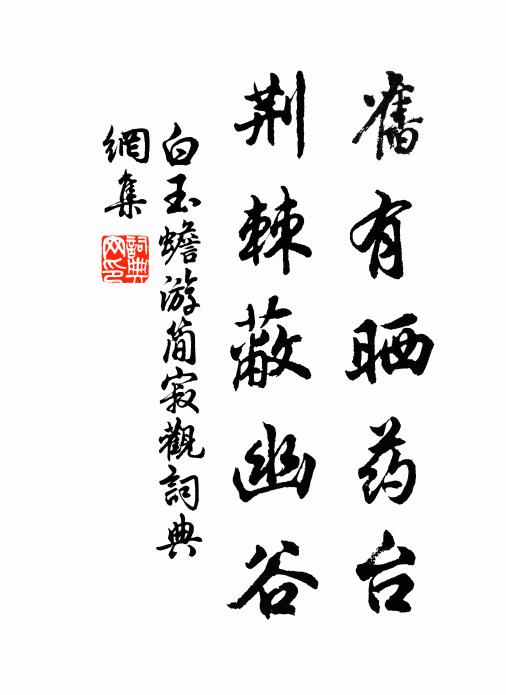 舊有晒药台
荆棘蔽幽谷
白玉蟾游简寂觀詞典
網集
詞典
网印